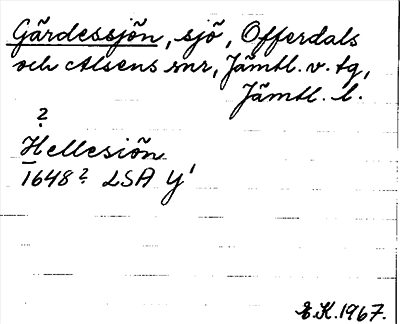 Gärdessjön, sjö, Offerdals
och Alsens snr, Jämtl. v. tg,
Jämtl. l.
?
Hellesiön
1648? LSA Y'
E.K. 1967.